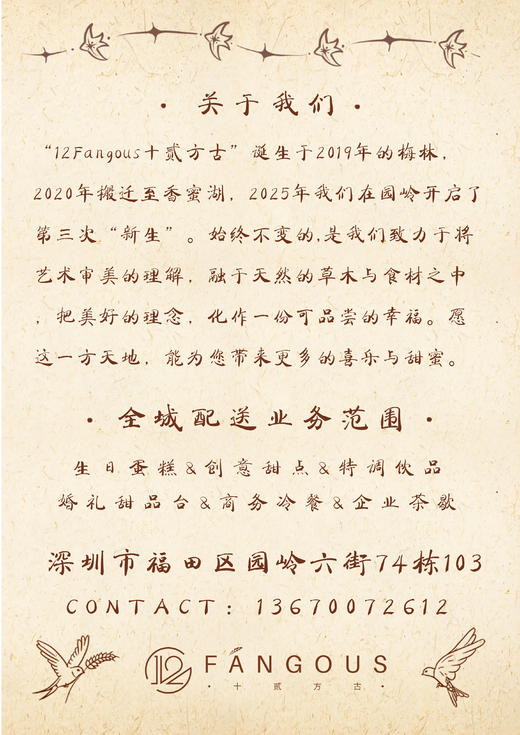 · 关于我们 ·
“12Fangous十贰方古”诞生于2019年的梅林,
2020年搬迁至香蜜湖, 2025年我们在园岭开启了
第三次“新生”。始终不变的,是我们致力于将
艺术审美的理解, 融于天然的草木与食材之中
, 把美好的理念, 化作一份可品尝的幸福。愿
这一方天地, 能为您带来更多的喜乐与甜蜜。
· 全城配送业务范围 ·
生日蛋糕&创意甜点&特调饮品
婚礼甜品台&商务冷餐&企业茶歇
深圳市福田区园岭六街74栋103
CONTACT: 13670072612
12 FANGOUS
· 十贰方古 ·